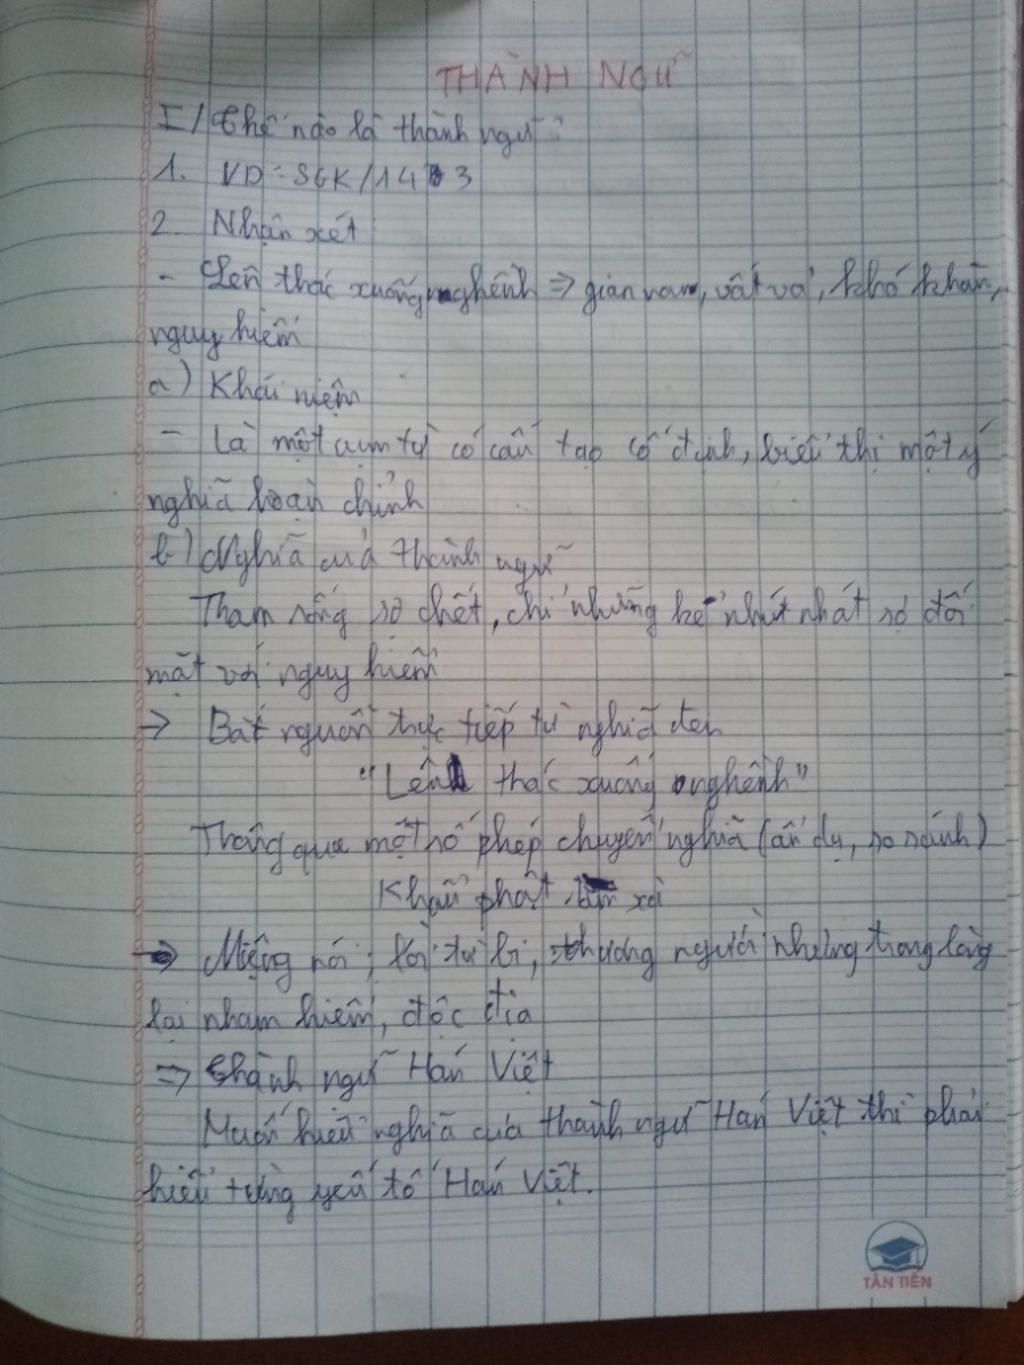 THÀNH NGỮ
I/ Thế nào là thành ngữ?
1. VD: SGK/143
2. Nhận xét
- Lên thác xuống nghềnh => gian nan, vất vả, khó khăn,
nguy hiểm
a) Khái niệm
- Là một cụm từ có cấu tạo cố định, biểu thị một ý
nghĩa hoàn chỉnh
b) Nghĩa của thành ngữ
Tham sống sợ chết, chỉ những kẻ nhút nhát sợ đối
mặt với nguy hiểm
-> Bắt nguồn trực tiếp từ nghĩa đen
"Lên thác xuống nghềnh"
Thông qua một số phép chuyển nghĩa (ẩn dụ, so sánh)
Khẩu phật xà
-> Miệng nói lời từ bi, thương người nhưng trong lòng
lại nham hiểm, độc địa
=> Thành ngữ Hán Việt
Muốn hiểu nghĩa của thành ngữ Hán Việt thì phải
hiểu từng yếu tố Hán Việt.
TÂN TIẾN